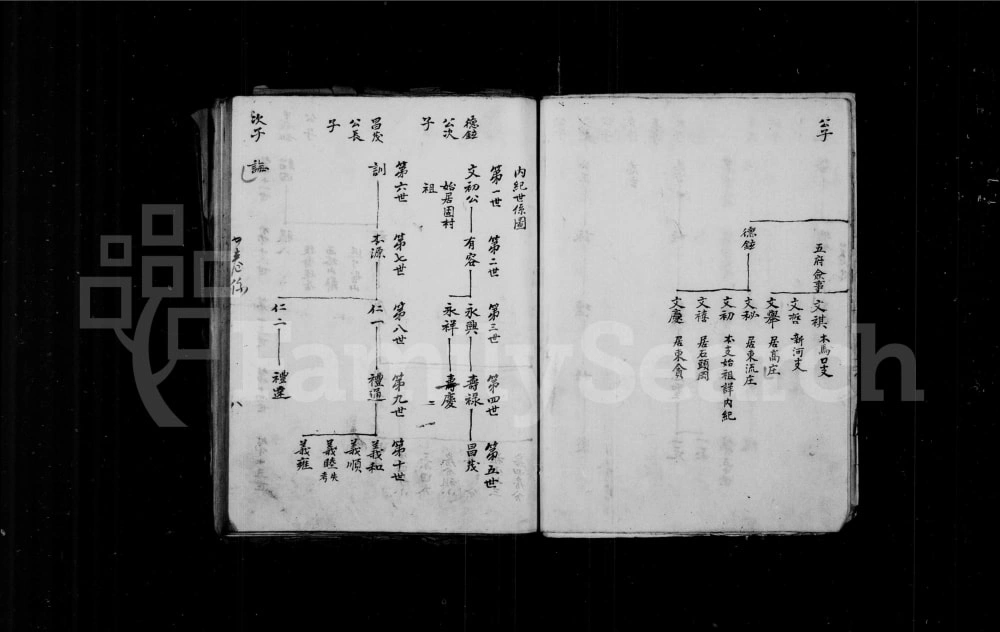 公子
五府僉事
文祺 木馬口支
文哲 新河支
文舉 居高庄
德鉦
文秘 居東流庄
文初 本支始祖詳内紀
文禧 居石頭岡
文慶 居東倉
内紀世係圖
第一世 第二世 第三世 第四世 第五世
德鉦公次子
文初公 有容 永興 壽禄 昌茂
始居固村祖
永祥 壽慶
第六世 第七世 第八世 第九世 第十世
昌茂公長子
訓 本源 仁一 禮通 義和
義順
義睦 失考
義雍
仁二 禮達
次子
八
FamilySearch